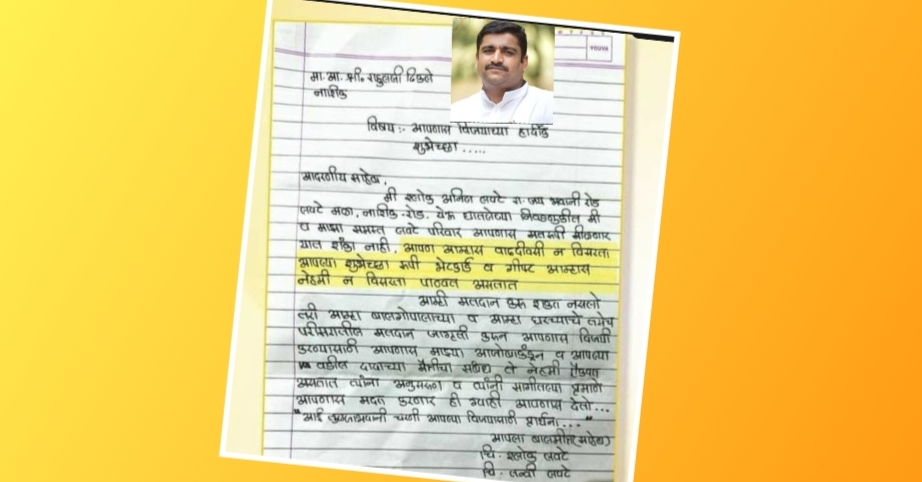 YOUVA
मा. आ. श्री. राहुलजी ढिकले
नाशिक
विषय :- आपणास विजयाच्या हार्दीक
शुभेच्छा .....
आदरणीय साहेब,
मी श्लोक अनिल लवटे रा. जय भवानी रोड
लवटे मळा, नाशिक-रोड. येऊ घातलेल्या निवडणुकीत मी
व माझा समस्त लवटे परिवार आपणास मतरुपी
यात शंका नाही, आपण आम्हास वाढदीवसी न विसरता
आपल्या शुभेच्छा रुपी भेटकार्ड व गीफ्ट आम्हास
नेहमी न विसरता पाठवत असतात
आम्ही मतदान करू शकत नसलो
तरी आम्हा बालगोपालाच्या व आम्हा घरच्याचे तसेच
परीसरातील मतदान जागृती करून आपणास विजयी
करण्यासाठी आपणास माझ्या आजोबाकडून व आपल्या
वडील दादाच्या मैत्रीचा ते नेहमी
असतात त्यांना अनुसरून व त्यांनी सांगीतल्या प्रमाणे
आपणास मदत करणार ही ग्वाही आपणास देतो...
"आई तुळजाभवानी चरणी आपल्या विजयासाठी प्रार्थना..."
आपला बालमीत्र(साहेब)
चि. श्लोक लवटे
चि. तन्वी लवटे